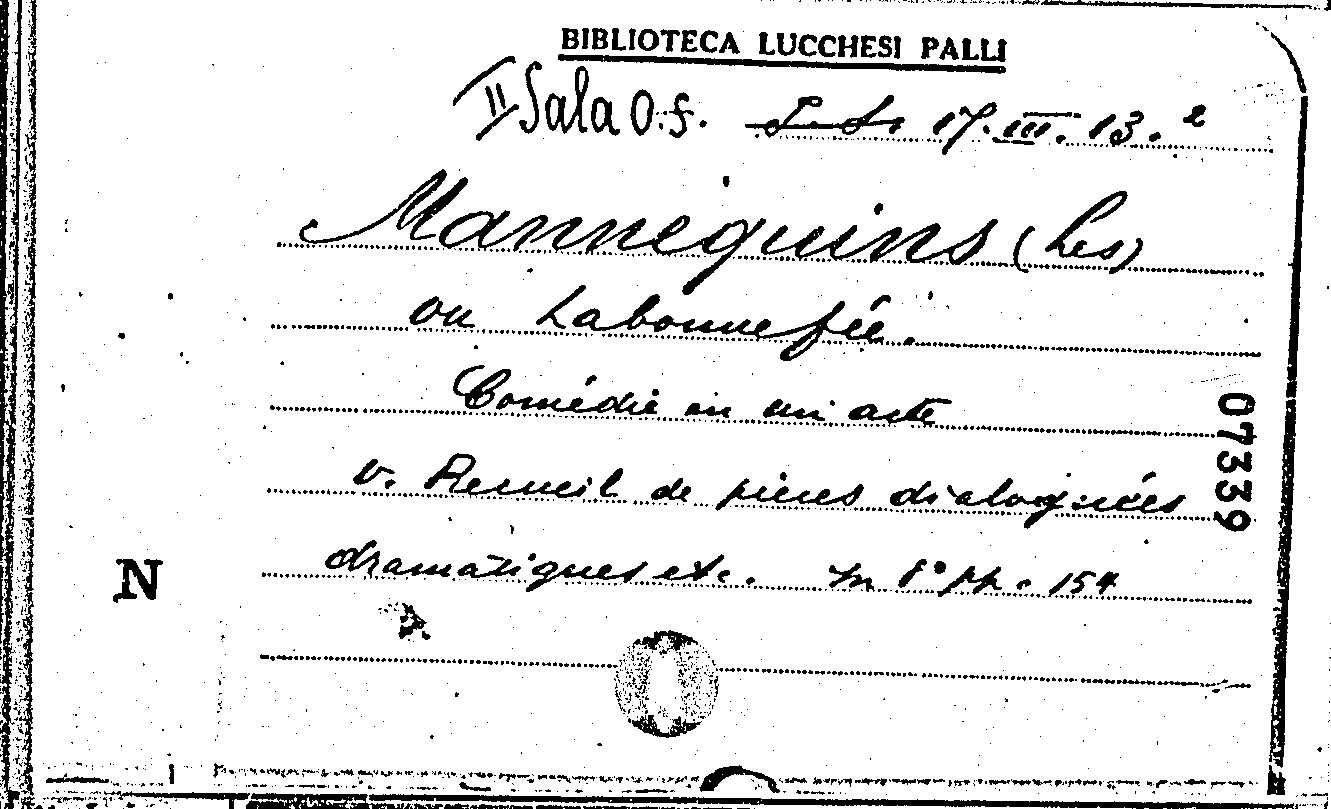 BIBLIOTECA LUCCHESI PALLI
II Sala O.S. 17.III.13.²
Mannequins (Les)
ou La bonne fée.
Comédie en un acte
v. Recueil de pièces dialoguées
dramatiques etc. In 8° pp. 154
N
07339